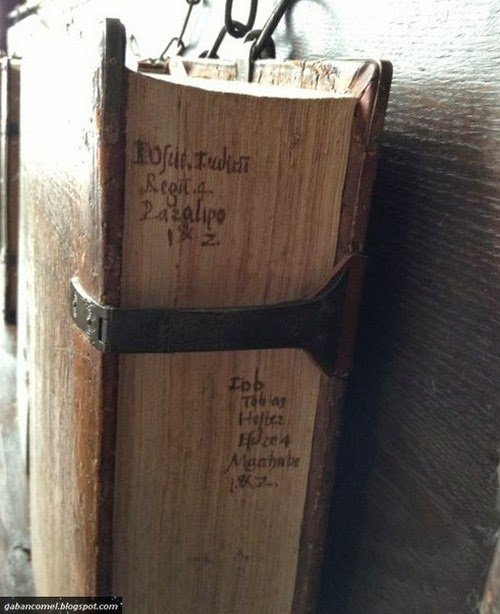 Iosue. Iudicū
Regū. 4
Paralipo
1 & 2
Iob
Tobias
Hester
Esdre 4
Machabe
1 & 2.
gabancomel.blogspot.com